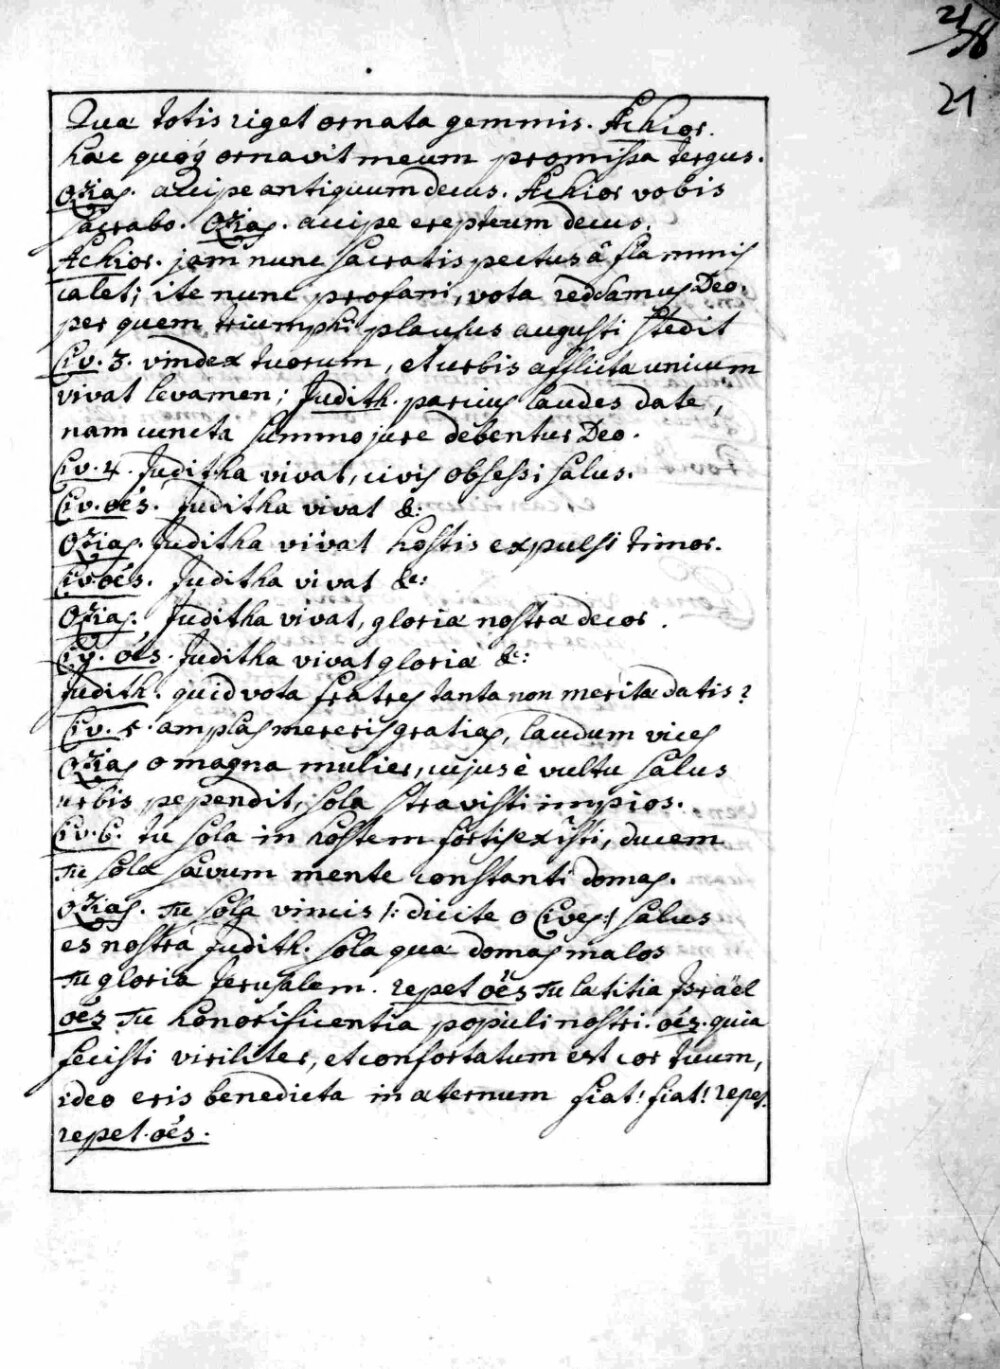 21
21
Quæ totis riget ornata gemmis. Achior.
hæc quoq́ ornavit meum promissa tergus.
Ozias. accipe antiquum decus. Achior vobis
sacrabo. Ozias. accipe ereptum decus.
Achior. jam nunc sacratis pectus â flammis
calet; ite nunc profani, vota reddamus Deo.
per quem triumphi plausus augusti stedit
Civ. 3. vindex tuorum, et urbis afflictæ unicum
vivat levamen; Judith. parcius laudes date,
nam cuncta summo jure debentur Deo.
Civ. 4. Juditha vivat, civis obsessi salus.
Civ. oēs. Juditha vivat &c:
Ozias. Juditha vivat hostis expulsi timor.
Civ oēs. Juditha vivat &c:
Ozias: Juditha vivat, gloriæ nostræ decor.
Civ. oēs. Juditha vivat gloriæ &c:
Judith. quid vota fratres tanta non meritæ datis?
Civ. 5. amplas mereris gratias, laudum vices
Ozias o magna mulier, cujus è vultu salus
urbis pependit, sola stravisti impios.
Civ. 6. tu sola in hostem fortis existi, ducem
Tu sola sævum mente constanti domas.
Ozias. Tu sola vincis /: dicite o Cives :/ salus
es nostra Judith. sola quæ domas malos
Tu gloria Jerusalem. repet oēs Tu lætitia Israël
oēs Tu honorificentia populi nostri. oēs. quia
fecisti viriliter, et confortatum est cor tuum,
ideo eris benedicta in æternum fiat! fiat! repet.
repet. oēs.